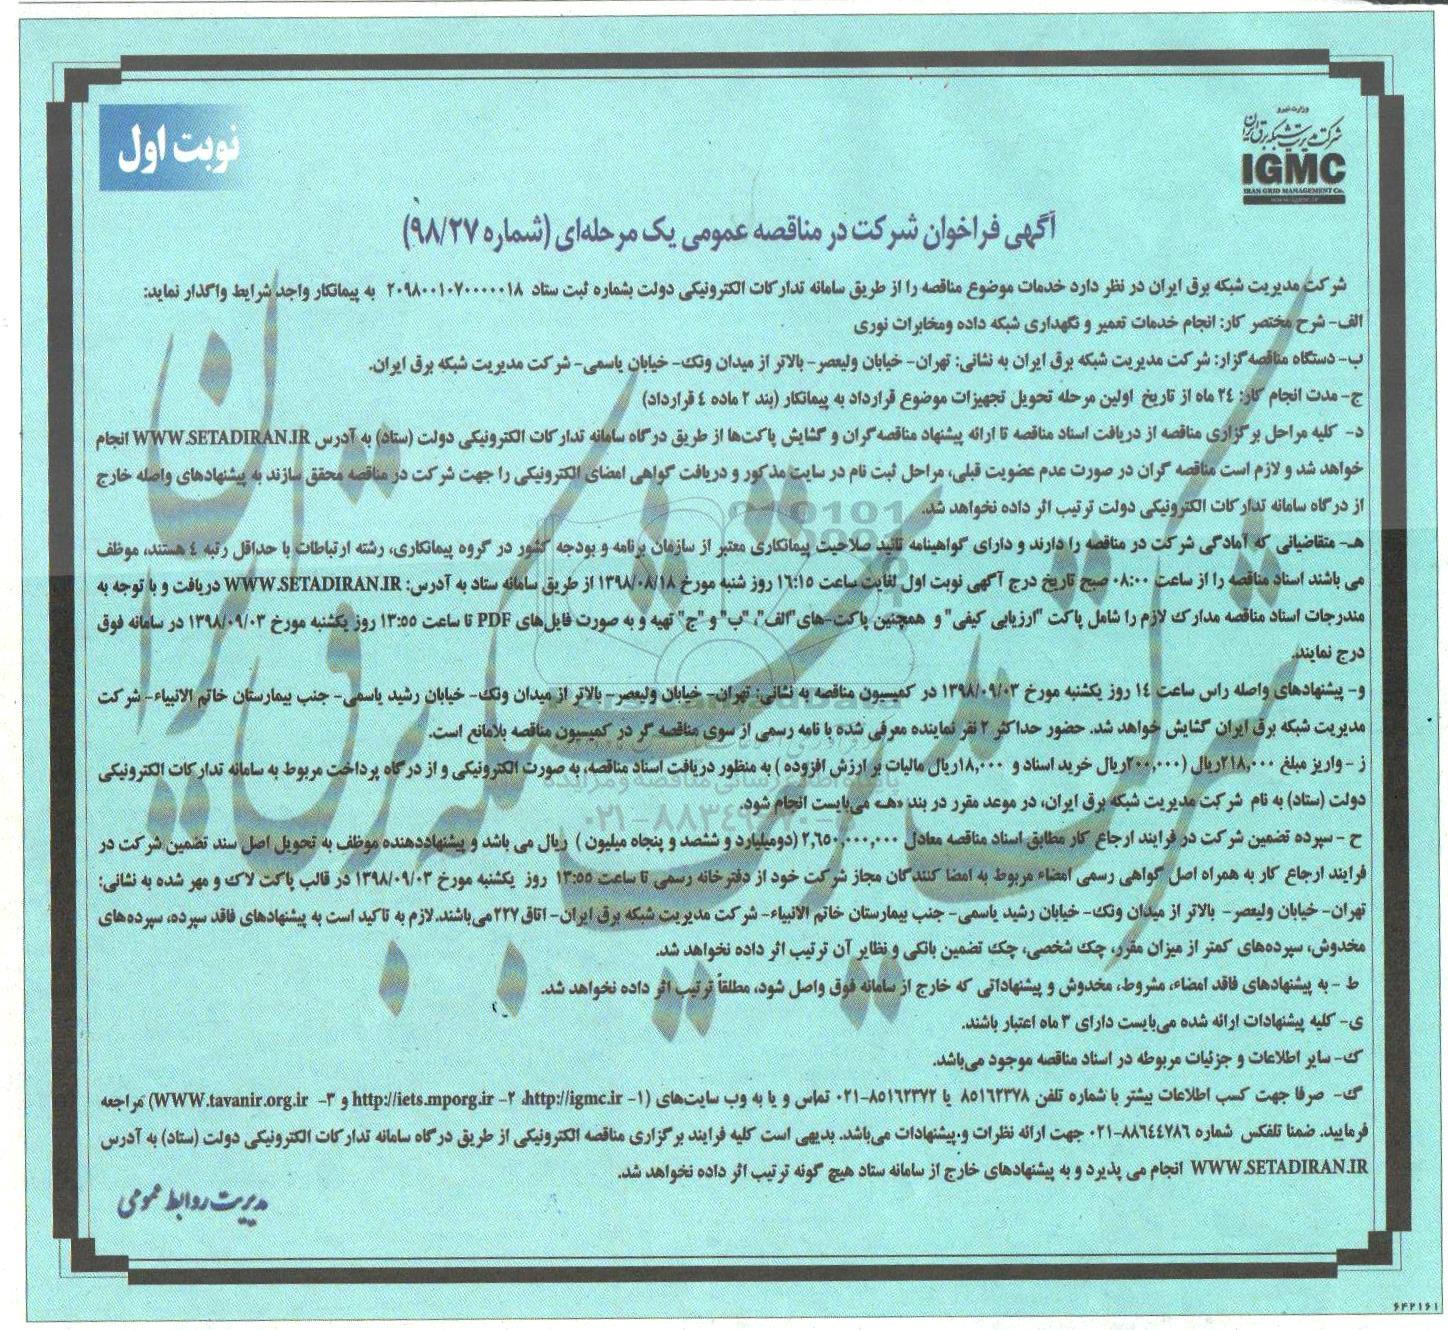 وزارت نیرو
شرکت مدیریت شبکه برق ایران
IGMC
IRAN GRID MANAGEMENT Co.
نوبت اول
آگهی فراخوان شرکت در مناقصه عمومی یک مرحله‌ای (شماره ۹۸/۲۷)
شرکت مدیریت شبکه برق ایران در نظر دارد خدمات موضوع مناقصه را از طریق سامانه تدارکات الکترونیکی دولت بشماره ثبت ستاد ۲۰۹۸۰۰۱۰۷۰۰۰۰۰۱۸ به پیمانکار واجد شرایط واگذار نماید:
الف- شرح مختصر کار: انجام خدمات تعمیر و نگهداری شبکه داده ومخابرات نوری
ب- دستگاه مناقصه‌گزار: شرکت مدیریت شبکه برق ایران به نشانی: تهران- خیابان ولیعصر- بالاتر از میدان ونک- خیابان یاسمی- شرکت مدیریت شبکه برق ایران.
ج- مدت انجام کار: ۲۴ ماه از تاریخ اولین مرحله تحویل تجهیزات موضوع قرارداد به پیمانکار (بند ۲ ماده ٤ قرارداد)
د- کلیه مراحل برگزاری مناقصه از دریافت اسناد مناقصه تا ارائه پیشنهاد مناقصه‌گران و گشایش پاکت‌ها از طریق درگاه سامانه تدارکات الکترونیکی دولت (ستاد) به آدرس WWW.SETADIRAN.IR انجام
خواهد شد و لازم است مناقصه گران در صورت عدم عضویت قبلی، مراحل ثبت نام در سایت مذکور و دریافت گواهی امضای الکترونیکی را جهت شرکت در مناقصه محقق سازند به پیشنهادهای واصله خارج
از درگاه سامانه تدارکات الکترونیکی دولت ترتیب اثر داده نخواهد شد.
هـ- متقاضیانی که آمادگی شرکت در مناقصه را دارند و دارای گواهینامه تائید صلاحیت پیمانکاری معتبر از سازمان برنامه و بودجه کشور در گروه پیمانکاری، رشته ارتباطات با حداقل رتبه ٤ هستند، موظف
می باشند اسناد مناقصه را از ساعت ۰۸:۰۰ صبح تاریخ درج آگهی نوبت اول لغایت ساعت ۱۶:۱۵ روز شنبه مورخ ۱۳۹۸/۰۸/۱۸ از طریق سامانه ستاد به آدرس: WWW.SETADIRAN.IR دریافت و با توجه به
مندرجات اسناد مناقصه مدارک لازم را شامل پاکت "ارزیابی کیفی" و همچنین پاکت-های "الف"، "ب" و "ج" تهیه و به صورت فایل‌های PDF تا ساعت ۱۳:۵۵ روز یکشنبه مورخ ۱۳۹۸/۰۹/۰۳ در سامانه فوق
درج نمایند.
و- پیشنهادهای واصله راس ساعت ۱۴ روز یکشنبه مورخ ۱۳۹۸/۰۹/۰۳ در کمیسیون مناقصه به نشانی: تهران- خیابان ولیعصر- بالاتر از میدان ونک- خیابان رشید یاسمی- جنب بیمارستان خاتم الانبیاء- شرکت
مدیریت شبکه برق ایران گشایش خواهد شد. حضور حداکثر ۲ نفر نماینده معرفی شده با نامه رسمی از سوی مناقصه گر در کمیسیون مناقصه بلامانع است.
ز - واریز مبلغ ۲۱۸,۰۰۰ریال (۲۰۰,۰۰۰ریال خرید اسناد و ۱۸,۰۰۰ریال مالیات بر ارزش افزوده ) به منظور دریافت اسناد مناقصه، به صورت الکترونیکی و از درگاه پرداخت مربوط به سامانه تدارکات الکترونیکی
دولت (ستاد) به نام شرکت مدیریت شبکه برق ایران، در موعد مقرر در بند «هـ» می‌بایست انجام شود.
ح - سپرده تضمین شرکت در فرایند ارجاع کار مطابق اسناد مناقصه معادل ۲,۶۵۰,۰۰۰,۰۰۰ (دومیلیارد و ششصد و پنجاه میلیون ) ریال می باشد و پیشنهاددهنده موظف به تحویل اصل سند تضمین شرکت در
فرایند ارجاع کار به همراه اصل گواهی رسمی امضاء مربوط به امضا کنندگان مجاز شرکت خود از دفترخانه رسمی تا ساعت ۱۳:۵۵ روز یکشنبه مورخ ۱۳۹۸/۰۹/۰۳ در قالب پاکت لاک و مهر شده به نشانی:
تهران- خیابان ولیعصر- بالاتر از میدان ونک- خیابان رشید یاسمی- جنب بیمارستان خاتم الانبیاء- شرکت مدیریت شبکه برق ایران- اتاق ۲۲۷می‌باشند.لازم به تاکید است به پیشنهادهای فاقد سپرده، سپرده‌های
مخدوش، سپرده‌های کمتر از میزان مقرر، چک شخصی، چک تضمین بانکی و نظایر آن ترتیب اثر داده نخواهد شد.
ط - به پیشنهادهای فاقد امضاء، مشروط، مخدوش و پیشنهاداتی که خارج از سامانه فوق واصل شود، مطلقاً ترتیب اثر داده نخواهد شد.
ی- کلیه پیشنهادات ارائه شده می‌بایست دارای ۳ ماه اعتبار باشند.
ک- سایر اطلاعات و جزئیات مربوطه در اسناد مناقصه موجود می‌باشد.
گ- صرفا جهت کسب اطلاعات بیشتر با شماره تلفن ۸۵۱۶۲۳۷۸ یا ۸۵۱۶۲۳۷۲-۰۲۱ تماس و یا به وب سایت‌های (۱- http://igmc.ir، ۲- http://iets.mporg.ir و ۳- WWW.tavanir.org.ir) مراجعه
فرمایید. ضمنا تلفکس شماره ۸۸۶۴۴۷۸۶-۰۲۱ جهت ارائه نظرات و پیشنهادات می‌باشد. بدیهی است کلیه فرایند برگزاری مناقصه الکترونیکی از طریق درگاه سامانه تدارکات الکترونیکی دولت (ستاد) به آدرس
WWW.SETADIRAN.IR انجام می پذیرد و به پیشنهادهای خارج از سامانه ستاد هیچ گونه ترتیب اثر داده نخواهد شد.
مدیریت روابط عمومی
۶۴۲۱۶۱